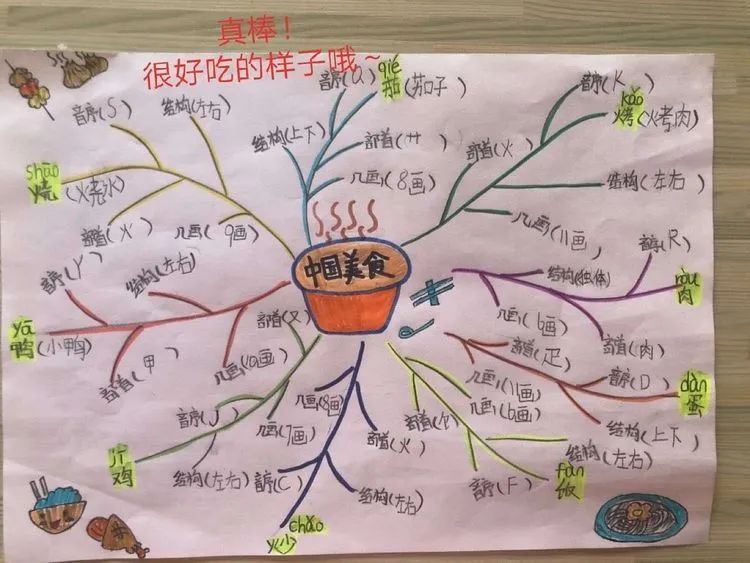 真棒！
很好吃的样子哦~
中国美食
qié
茄(茄子)
音序(Q)
部首(艹)
结构(上下)
几画(8画)
kǎo
烤(火考肉)
音序(K)
部首(火)
结构(左右)
几画(11画)
ròu
肉
音序(R)
结构(独体)
几画(6画)
部首(肉)
dàn
蛋
部首(疋)
音序(D)
几画(11画)
结构(上下)
fàn
饭
几画(6画)
部首(饣)
结构(左右)
音序(F)
chǎo
炒
几画(8画)
部首(火)
音序(C)
结构(左右)
鸡
部首(又)
音序(J)
几画(7画)
结构(左右)
yā
鸭(小鸭)
音序(Y)
结构(左右)
部首(甲)
几画(10画)
shāo
烧(火烧水)
音序(S)
结构(左右)
部首(火)
几画(9画)